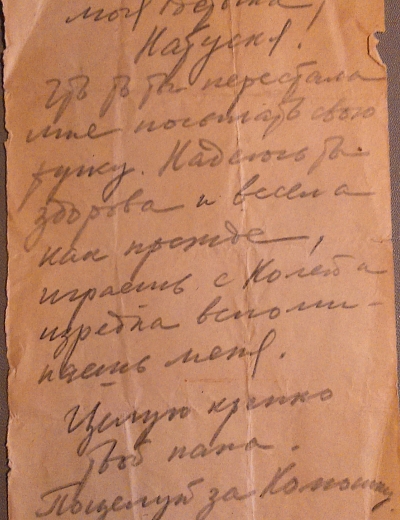 моя
Натуся!
ты перестала
мне посылать свою
Надеюсь ты
здорова и весела
как прежде,
играешь с
изредка вспоми-
наешь меня.
Целую крепко
твой папа.
Поцелуй за